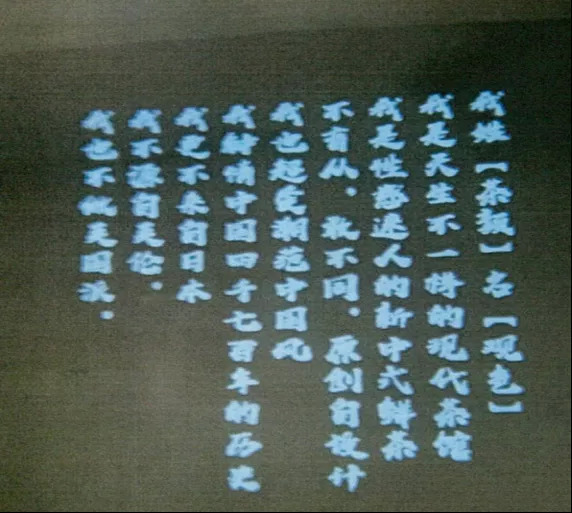 我姓【茶颜】名【观色】
我是天生不一样的现代茶馆
我是性感迷人的新中式鲜茶
不盲从，敢不同，原创自设计
我也超爱潮范中国风
我钟情中国四千七百年的历史
我更不来自日本
我不源自英伦，
我也不似美国派。